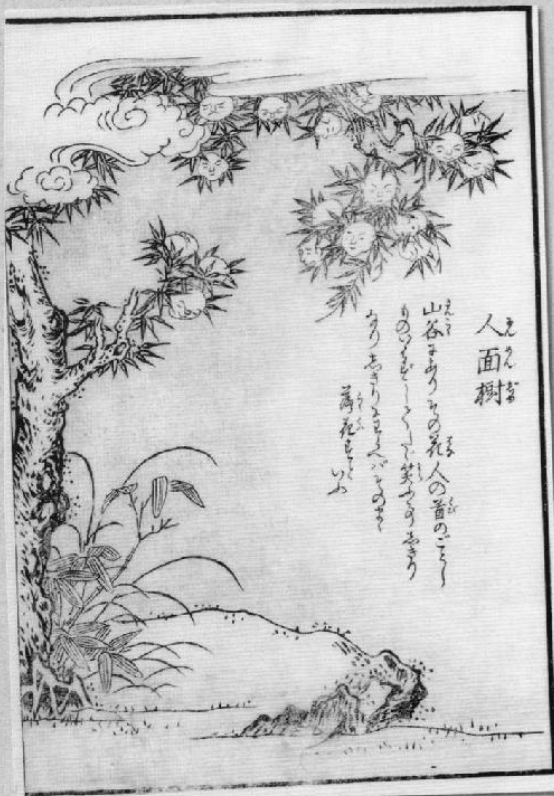 人面樹
山谷にありその花人の首のごとし
ものいはずしてたゞ笑ふ事しきり
なりしきりにわらへばそのまゝ
落花すといふ